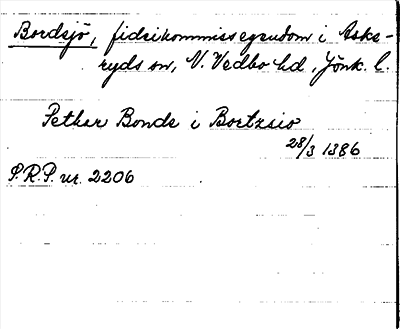 Bordsjö, fideikommissegendom i Aske-
ryds sn, N. Vedbo hd, Jönk. l.
Petkar Bonde i Bortzsio
28/3 1386
P.R.P. nr. 2206